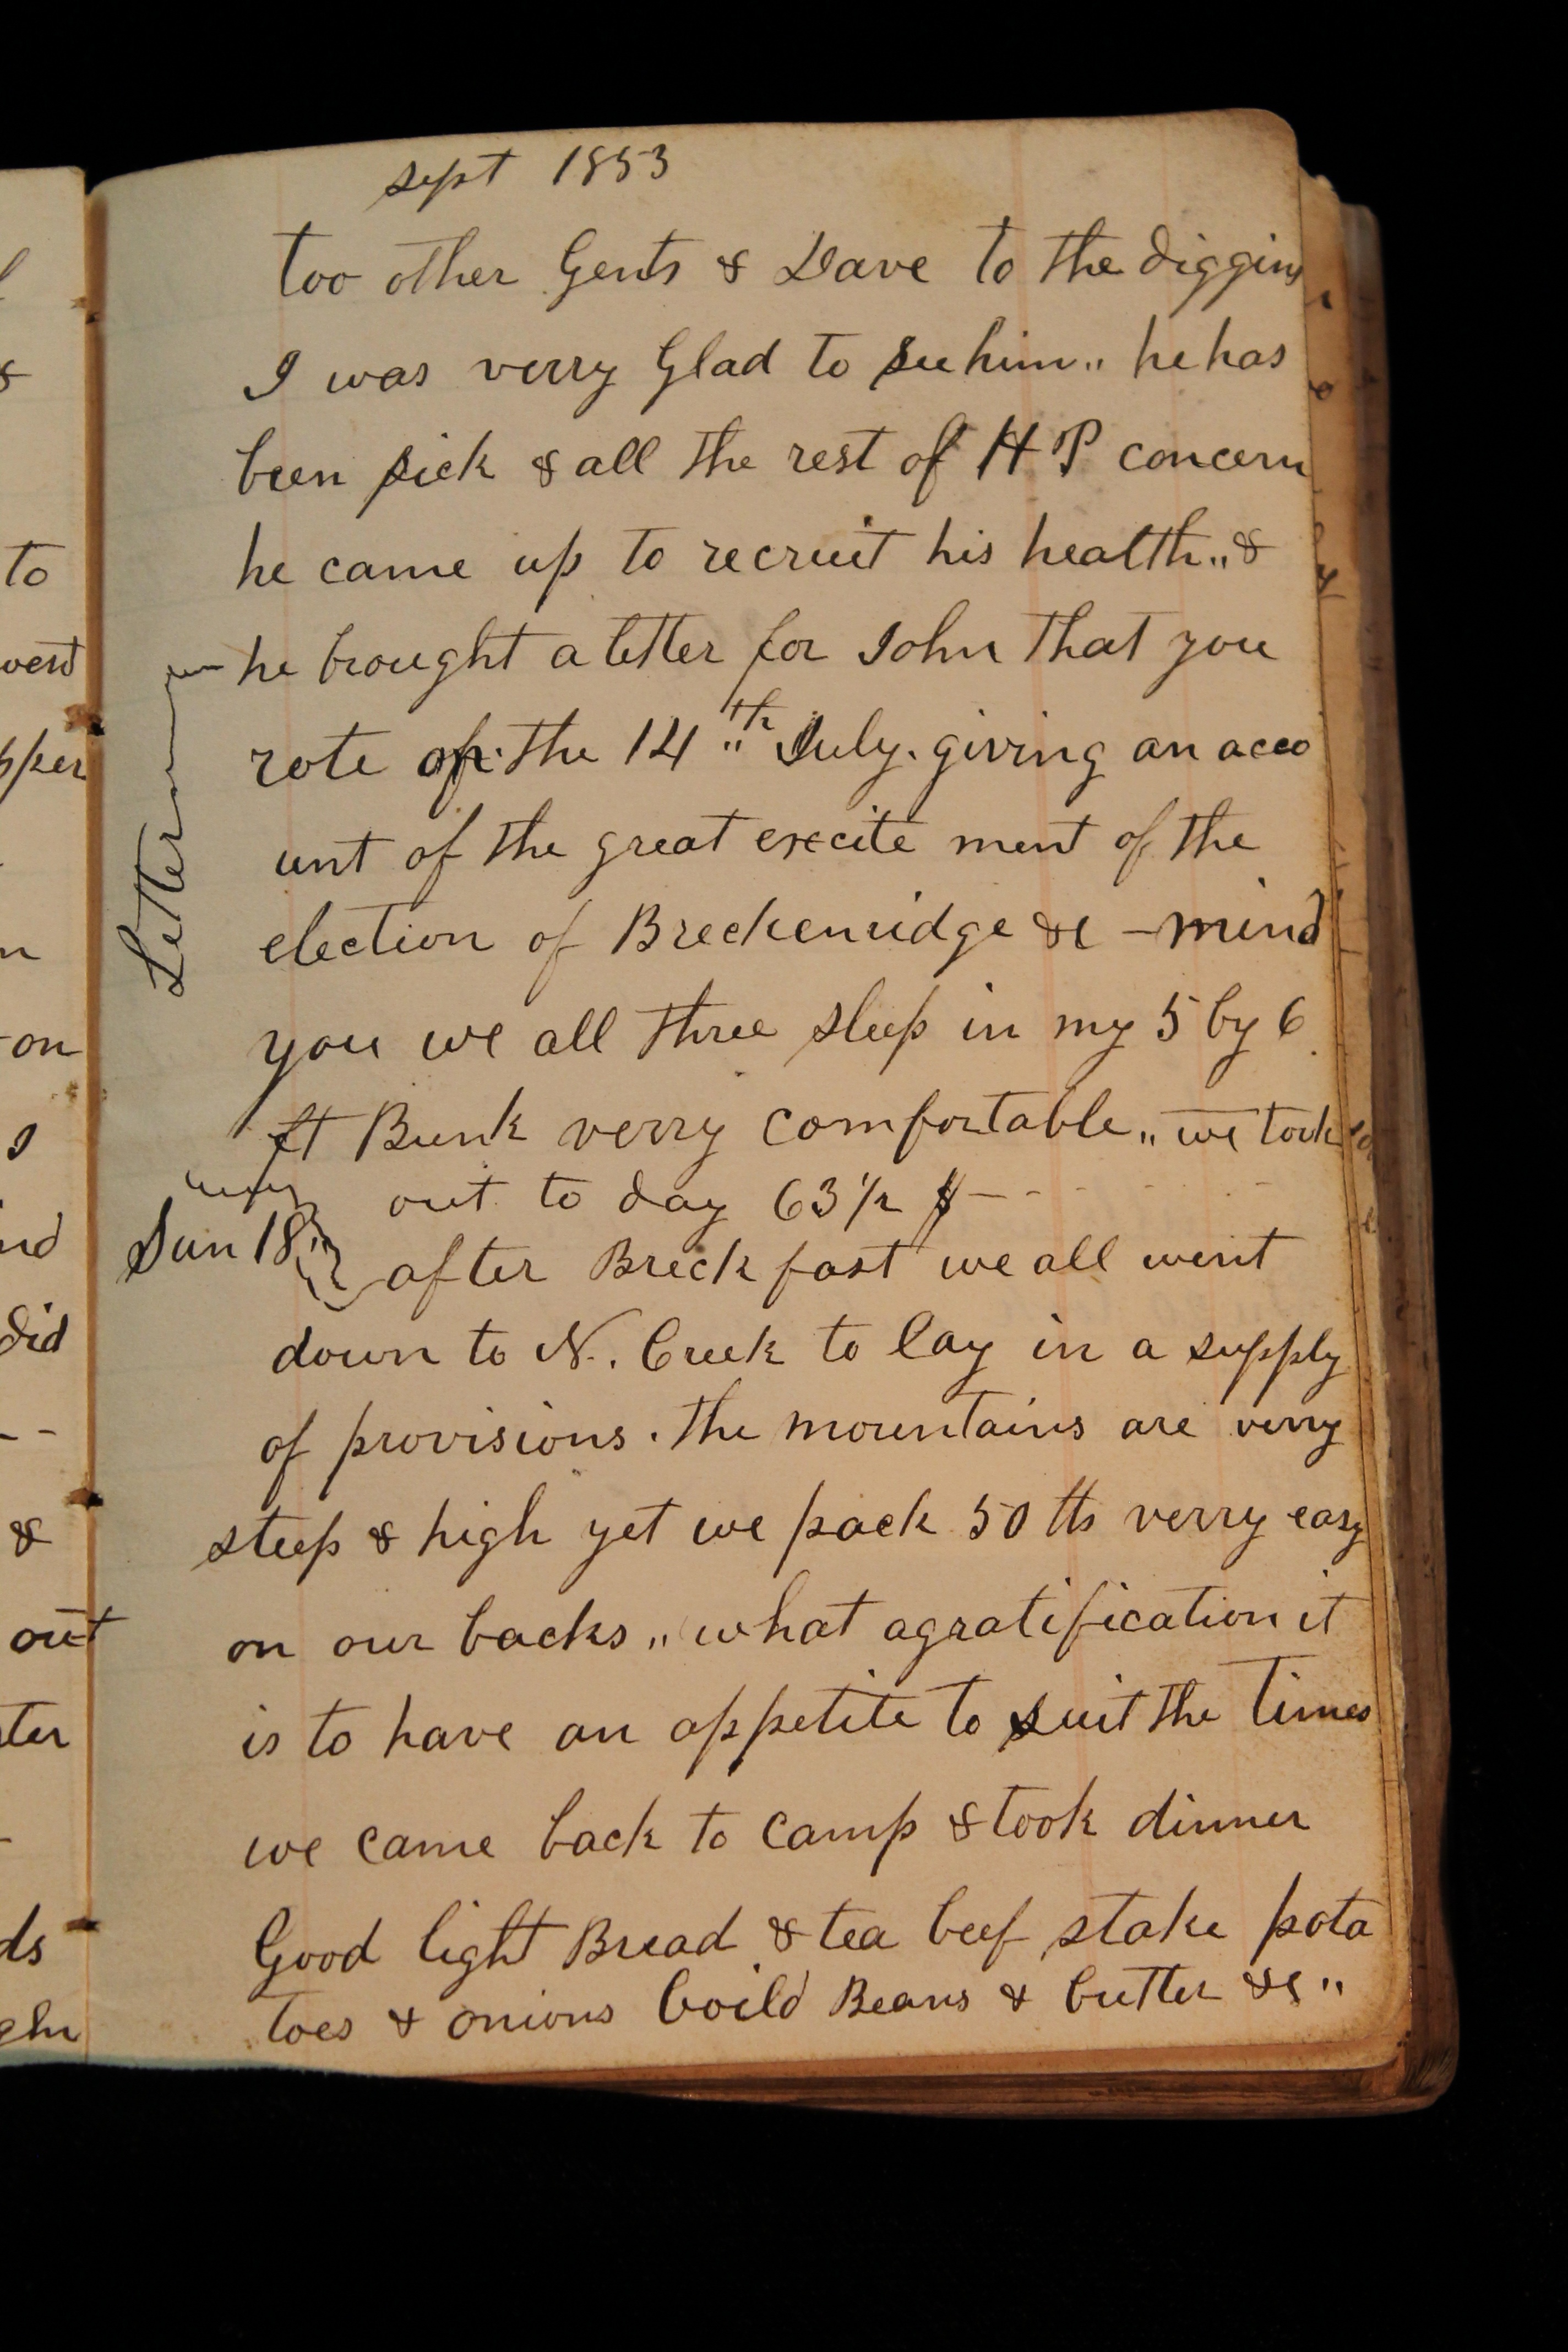 sept 1853
too other Gents & Dave to the diggins
I was verry Glad to see him„ he has
been sick & all the rest of H P concern
he came up to recruit his health„ &
he brought a letter for John that you
Letter
rote on the 14„th July. giving an acco
unt of the great excite ment of the
election of Breckenridge &c – mind
you we all three sleep in my 5 by 6
ft Bunk verry comfortable„ we took
out to day 63 1/2 $ – - - - - -
Sun 18 after Breckfast we all went
down to N. Creek to lay in a supply
of provisions. the mountains are verry
steep & high yet we pack 50 lbs verry easy
on our backs„ what agratification it
is to have an appetite to suit the times
we came back to camp & took dinner
Good light Bread & tea beef stake pota
toes & onions boild Beans & butter &c „
to
&
did
out
ds
on
I